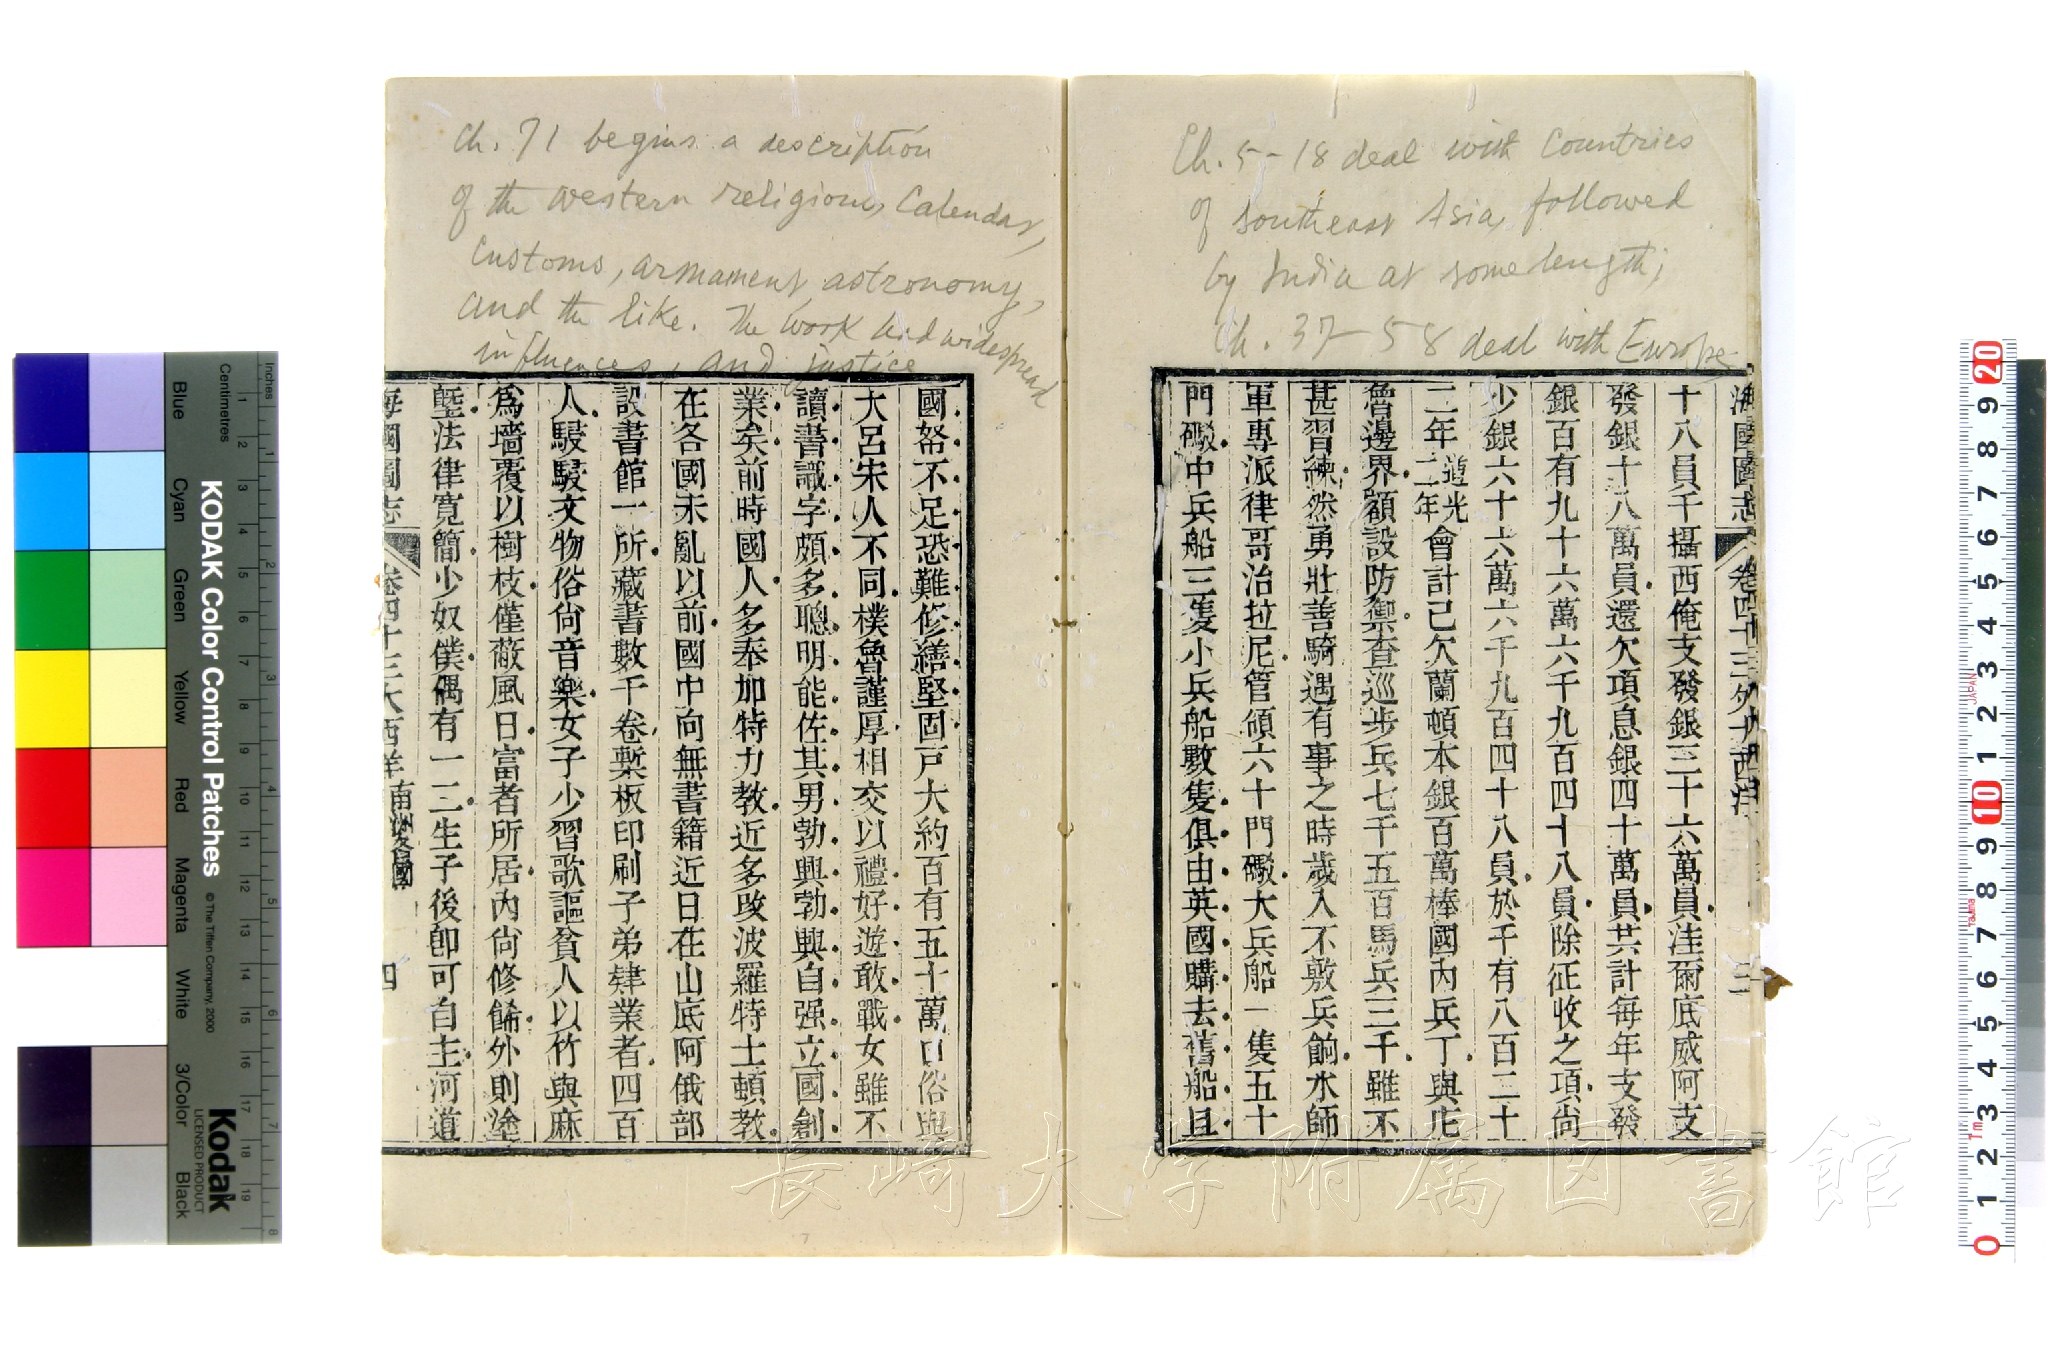 Ch. 5-18 deal with Countries
of southeast Asia, followed
by India at some length;
Ch. 37-58 deal with Europe
海國圖志 卷四十三 大西洋 三
十八員千攝西俺支發銀三十六萬員洼爾底威阿支
發銀十八萬員還欠項息銀四十萬員共計每年支發
銀百有九十六萬六千九百四十八員除征收之項尚
少銀六十六萬六千九百四十八員於千有八百二十
二年道光二年會計己欠蘭頓本銀百萬棒國內兵丁與
魯邊界額設防禦查巡步兵七千五百馬兵三千雖不
甚習練然勇壯善騎遇有事之時歲入不敷兵餉水師
軍專派律哥治拉尼管領六十門礮大兵船一隻五十
門礮中兵船三隻小兵船數隻俱由英國購去舊船且
Ch. 71 begins a description
of the western religions, Calendar,
Customs, armament, astronomy,
and the like. The work had widespread
influences, and justice
國帑不足恐難修繕堅固戸大約百有五十萬口俗與
大呂宋人不同樸魯謹厚相交以禮好遊敢戰女雖不
讀書識字頗多聰明能佐其男勃興勃興自强立國創
業矣前時國人多奉加特力教近多攻波羅特士頓教
在各國未亂以前國中向無書籍近日在山底阿俄部
設書館一所藏書數千卷槧板印刷子弟肄業者四百
人駸駸文物俗尚音樂女子少習歌謳貧人以竹與麻
爲墻覆以樹枝僅蔽風日富者所居內尚修餙外則塗
墍法律寬簡少奴僕偶有一二生子後卽可自主河道
海國圖志 卷四十三 大西洋 南洲 四
KODAK Color Control Patches
© The Tiffen Company, 2000
Kodak
LICENSED PRODUCT
Inches
Centimetres
Blue
Cyan
Green
Yellow
Red
Magenta
White
3/Color
Black
長崎大学附属図書館